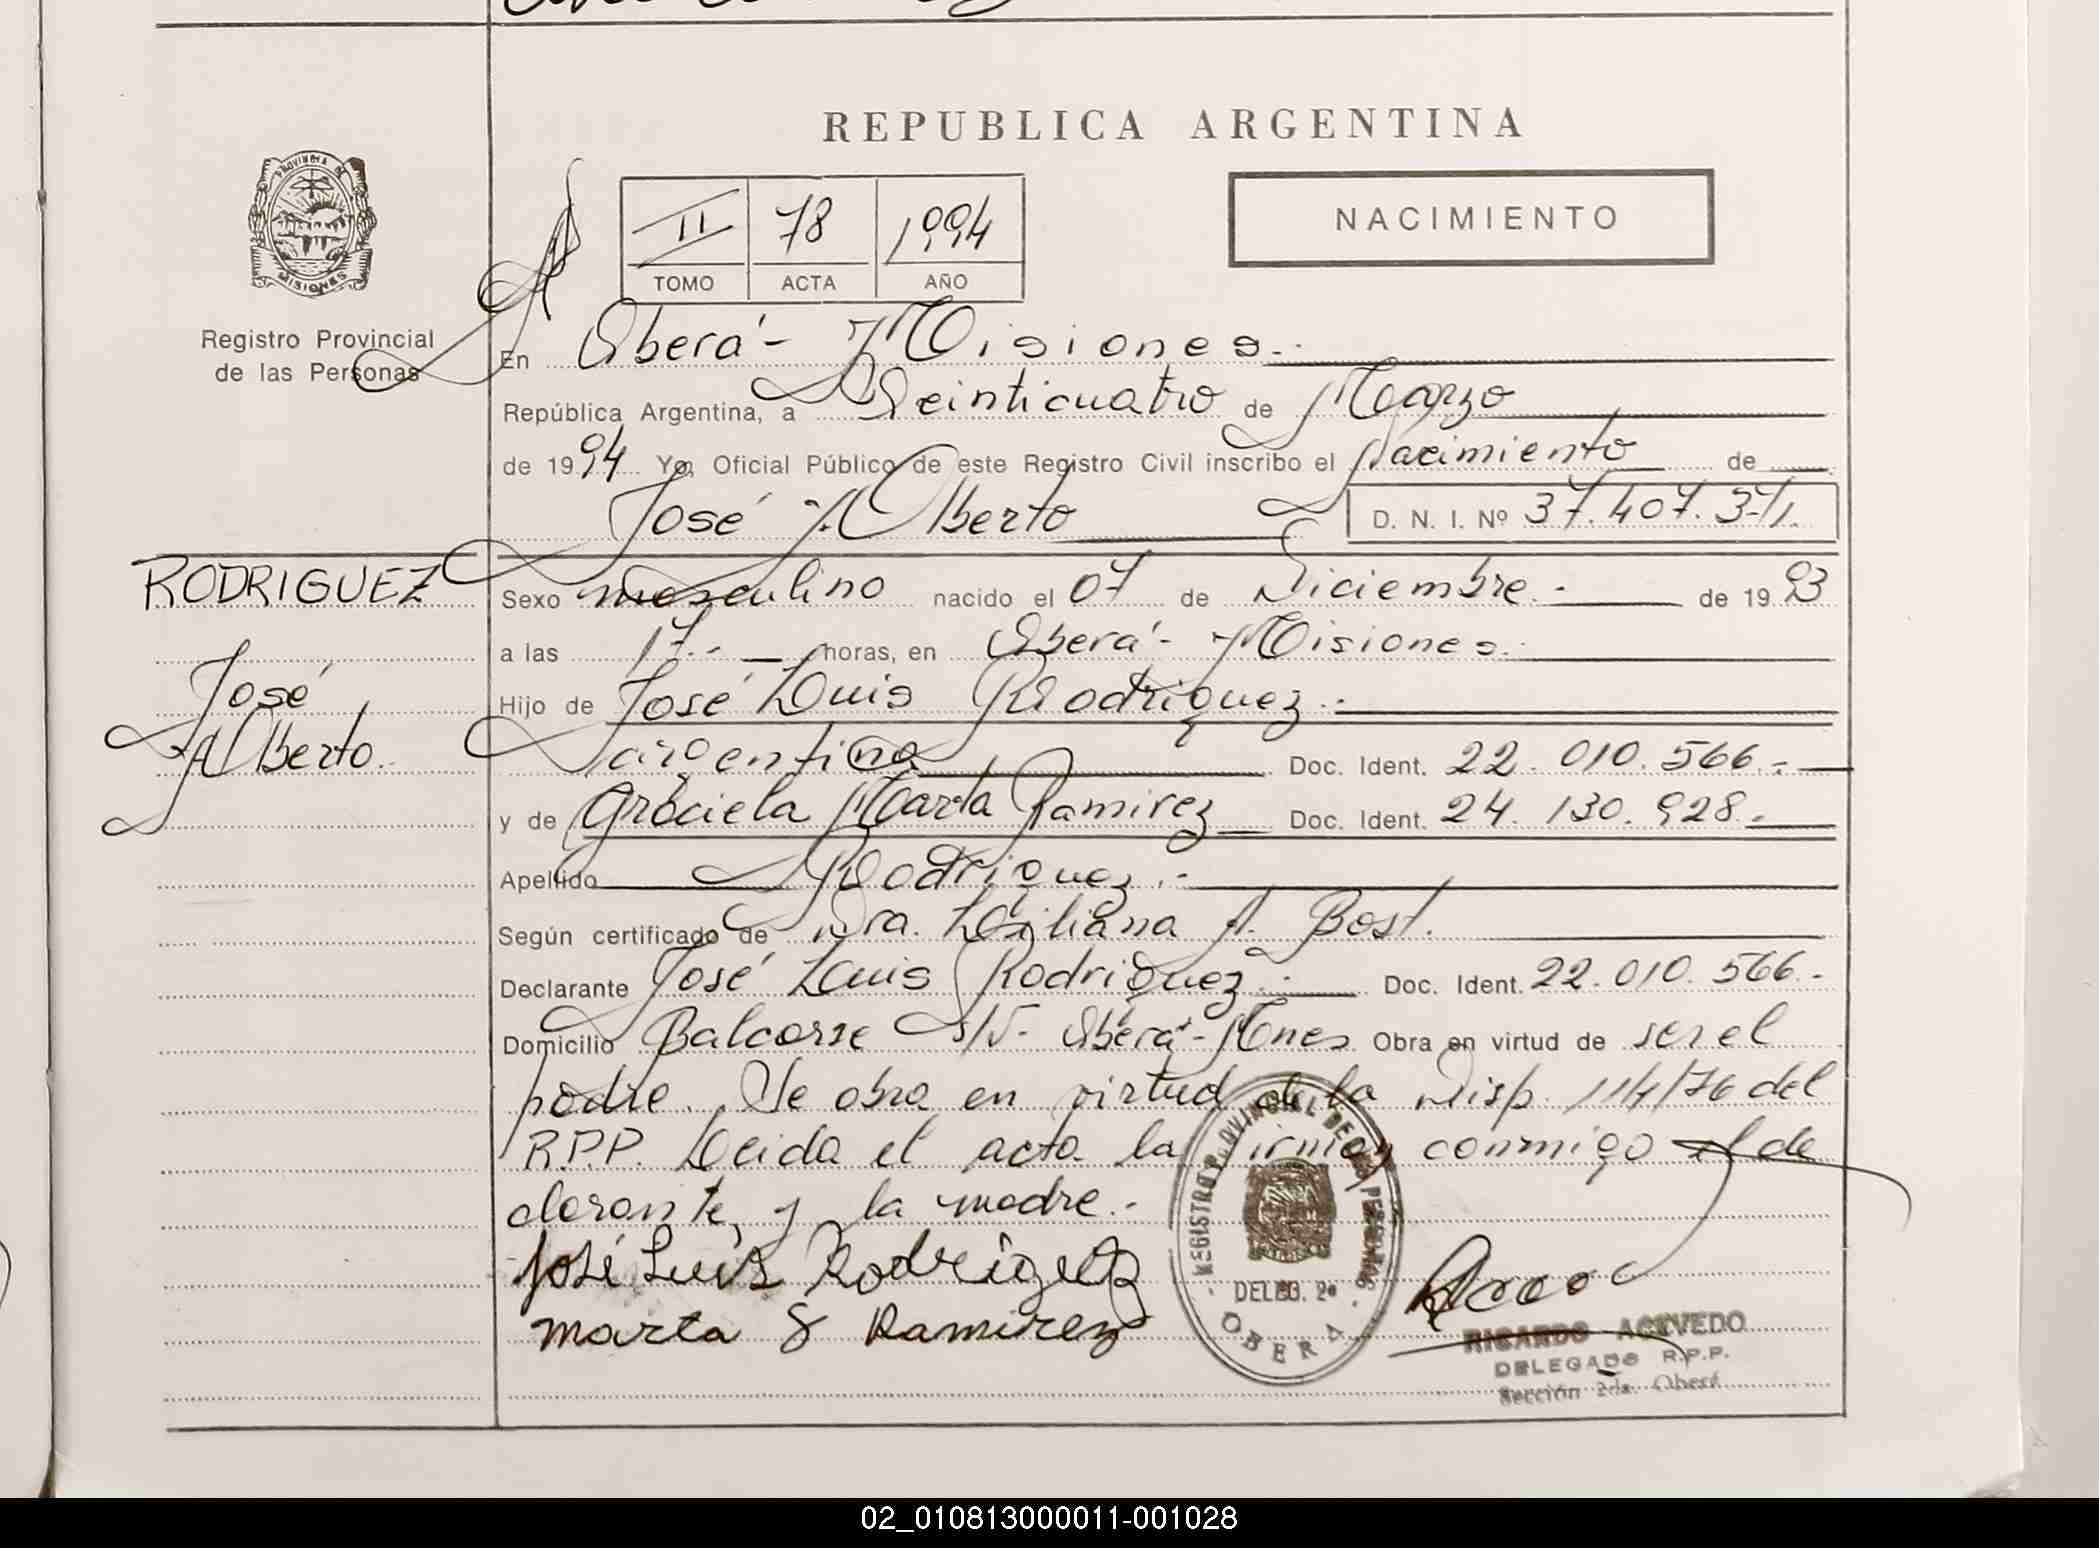 REPUBLICA ARGENTINA
PROVINCIA DE MISIONES
Registro Provincial
de las Personas
II 78 1994
TOMO ACTA AÑO
NACIMIENTO
En Oberá - Misiones.-
República Argentina, a Veinticuatro de Marzo
de 1994 Yo, Oficial Público de este Registro Civil inscribo el Nacimiento de
José Alberto D. N. I. Nº 37.407.371.
RODRIGUEZ
José
Alberto.
Sexo masculino nacido el 07 de Diciembre.- de 1993
a las 17.- horas, en Oberá - Misiones.
Hijo de José Luis Rodriguez.-
argentina Doc. Ident. 22.010.566.-
y de Graciela Marta Ramirez Doc. Ident. 24.130.928.-
Apellido Rodriguez.-
Según certificado de Dra. Liliana A. Bost.
Declarante José Luis Rodriguez.- Doc. Ident. 22.010.566.-
Domicilio Balcarse S/N- Oberá - Mnes Obra en virtud de ser el
padre. Se obra en virtud de la Disp. 114/76 del
R.P.P. Leida el acta la firman conmigo el de
clarante, y la madre.-
José Luis Rodriguez
Marta G Ramirez
REGISTRO PROVINCIAL DE LAS PERSONAS
DELEG. 2ª
OBERA
RICARDO ACEVEDO
DELEGADO R.P.P.
Sección 2da. Oberá
02_010813000011-001028